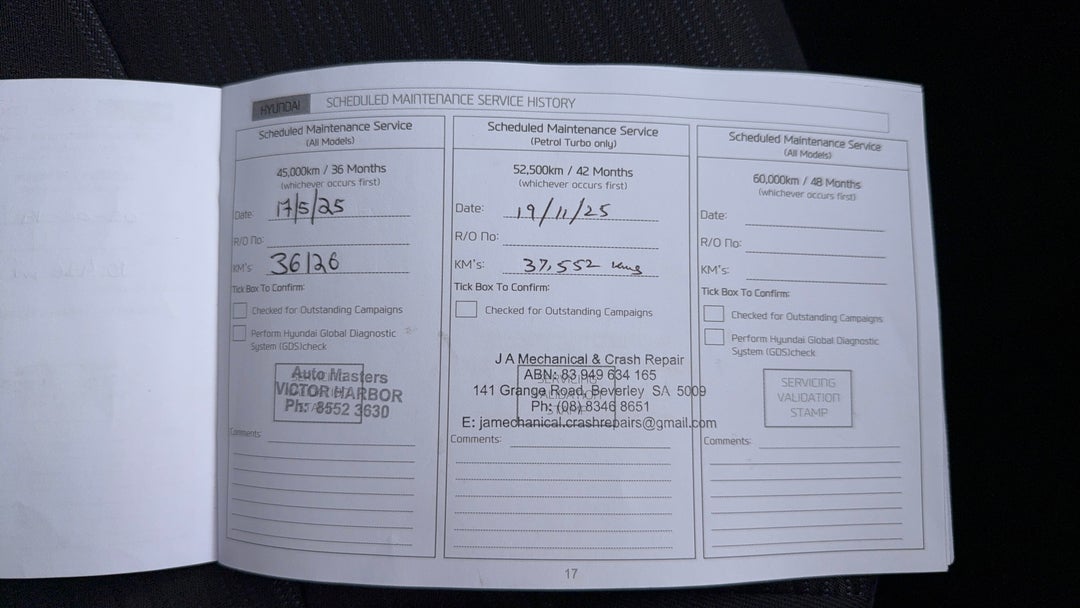 HYUNDAI SCHEDULED MAINTENANCE SERVICE HISTORY
Scheduled Maintenance Service
(All Models)
45,000km / 36 Months
(whichever occurs first)
Date: 17/5/25
R/O No:
KM's: 36126
Tick Box To Confirm:
Checked for Outstanding Campaigns
Perform Hyundai Global Diagnostic
System (GDS)check
Auto Masters
VICTOR HARBOR
Ph: 8552 3630
Comments:
Scheduled Maintenance Service
(Petrol Turbo only)
52,500km / 42 Months
(whichever occurs first)
Date: 19/11/25
R/O No:
KM's: 37,552 kms
Tick Box To Confirm:
Checked for Outstanding Campaigns
J A Mechanical & Crash Repair
ABN: 83 949 634 165
141 Grange Road, Beverley SA 5009
Ph: (08) 8346 8651
E: jamechanical.crashrepairs@gmail.com
Comments:
Scheduled Maintenance Service
(All Models)
60,000km / 48 Months
(whichever occurs first)
Date:
R/O No:
KM's:
Tick Box To Confirm:
Checked for Outstanding Campaigns
Perform Hyundai Global Diagnostic
System (GDS)check
SERVICING
VALIDATION
STAMP
Comments:
17